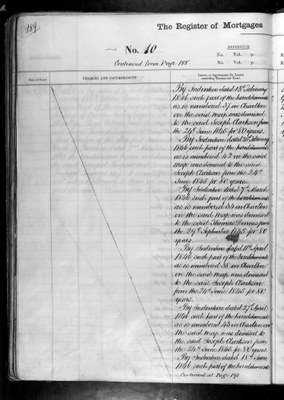 189
The Register of Mortgages
No. 10
REFERENCE
No. Vol. p.
No. Vol. p.
Continued from Page 188
Date of Entry
CHARGES AND INCUMBRANCES
Leases or Agreements for Leases
exceeding Twenty-one Years
By Indenture dated 18th February
1846 such part of the hereditaments
as is numbered 37 in Charlton
on the said map was demised
to the said Joseph Clarkson from
the 24th June 1845 for 80 years.
By Indenture dated
1846 such part of the hereditaments
as is numbered 43 on the said
map was demised to the said
Joseph Clarkson from the 24th
June 1845 for 80 years.
By Indenture dated 7th March
1846 such part of the hereditaments
as is numbered 34 in Charlton
on the said map was demised
to the said Thomas from
the 29th September 1845 for 80
years.
By Indenture dated 11th April
1846 such part of the hereditaments
as is numbered 35 in Charlton
on the said map was demised
to the said Joseph Clarkson
from the 24th June 1845 for 80
years.
By Indenture dated 27th April
1846 such part of the hereditaments
as is numbered in Charlton on
the said map was demised to
the said Joseph Clarkson from
the 24th June 1845 for 80 years.
By Indenture dated 18th June
1846 such part of the hereditaments
Continued at Page 190